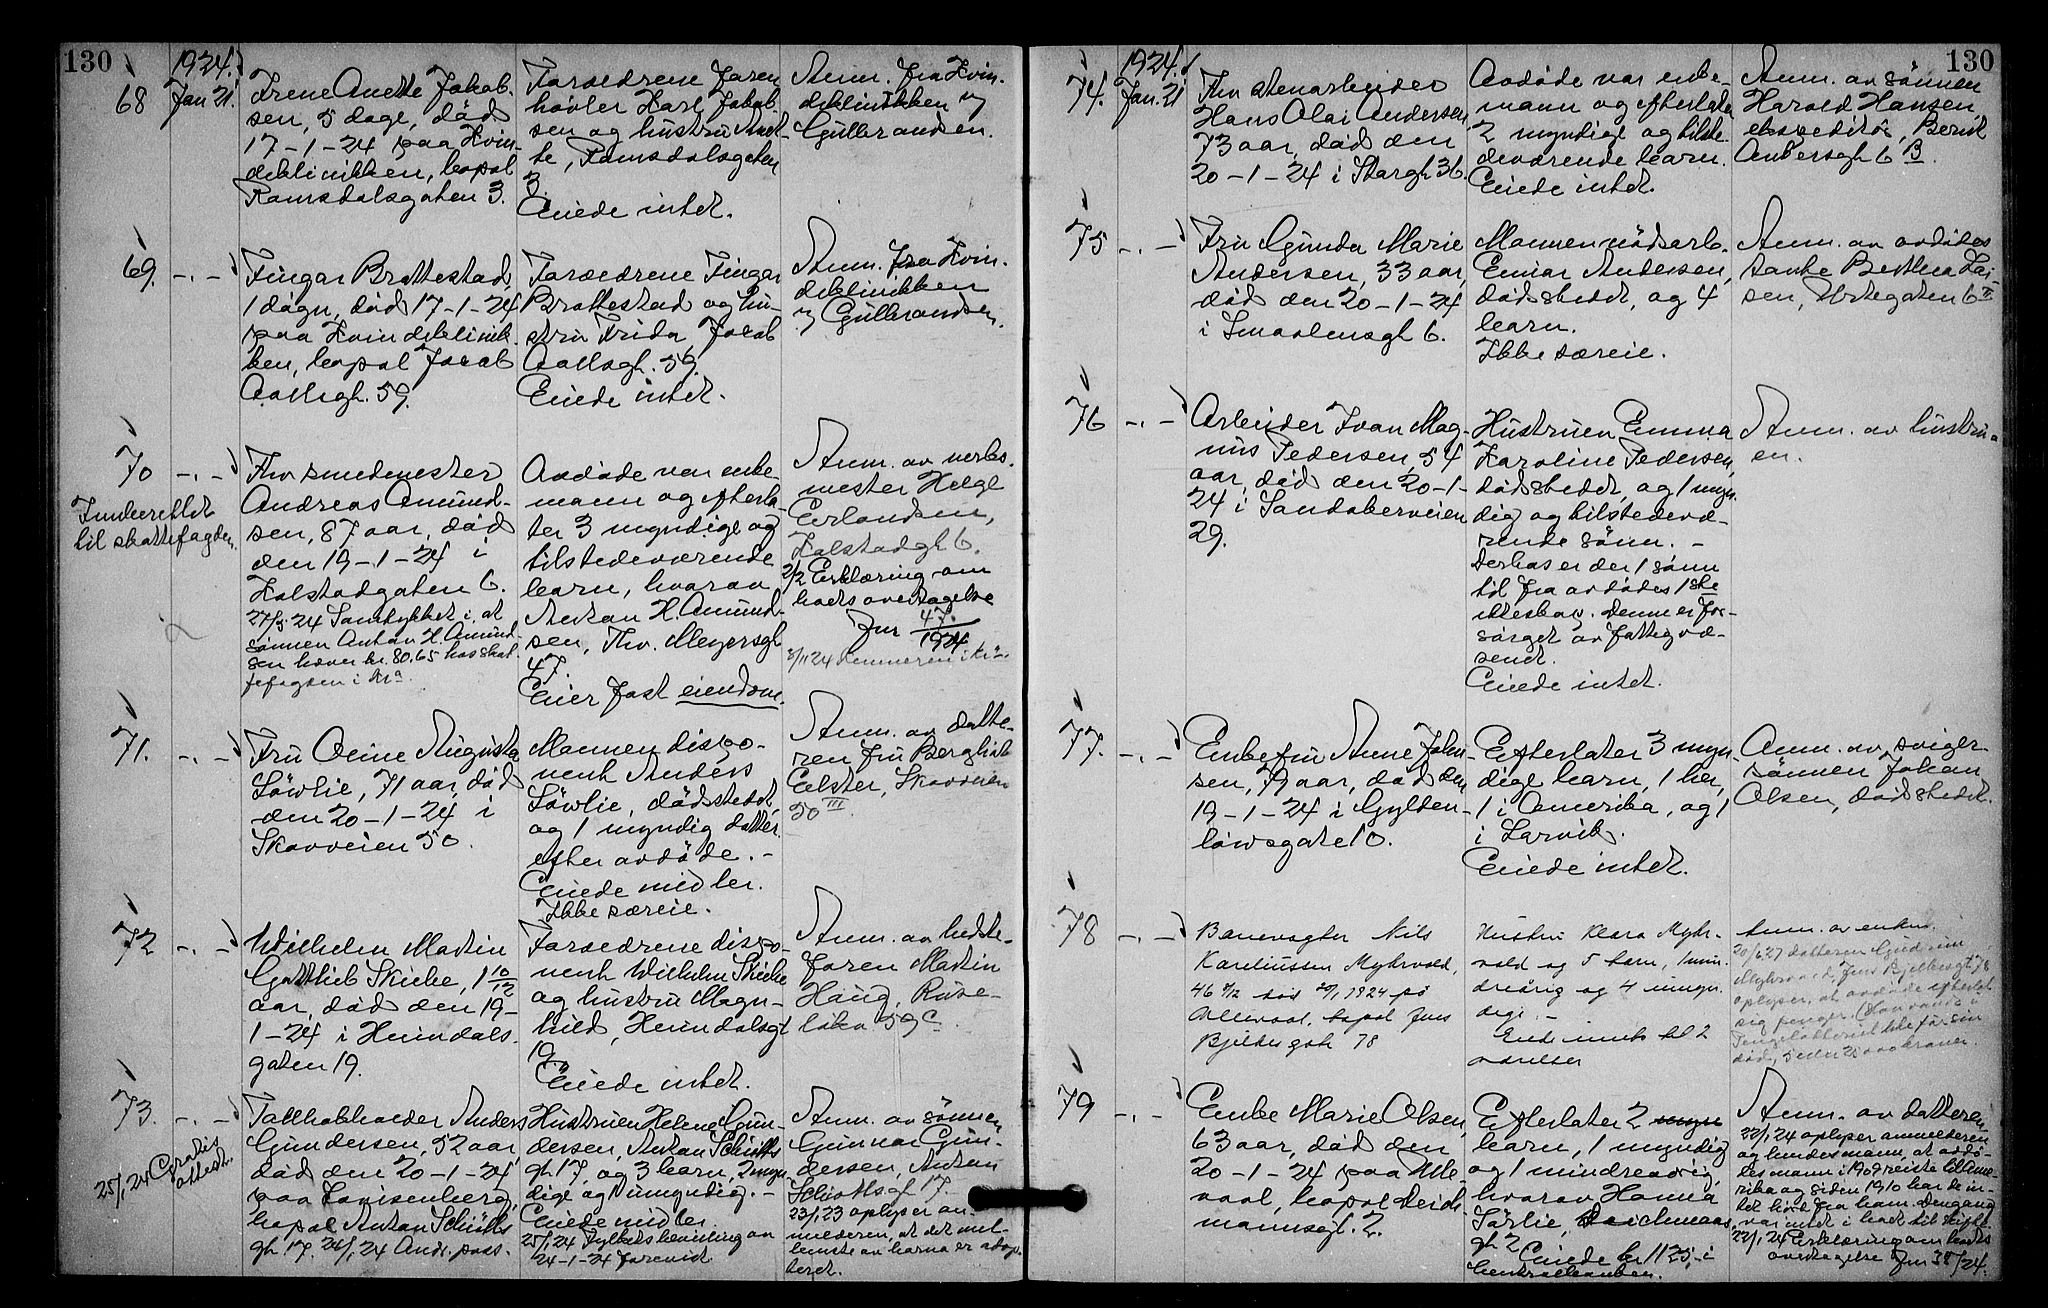 130
1924.
68
Jan 21.
Irene Anette Jakob-
sen, 5 dage, død
17-1-24 paa Kvin-
deklinikken, bopæl
Ramsdalsgaten 3.
Forældrene
høvler Karl Jakob-
sen og hustru Anet-
te, Ramsdalsgaten
3.
Eiede intet.
Anm. fra Kvin-
deklinikken v/
Gulbrandsen.
69.
-.-
Fingar Brattestad,
1 døgn, død 17-1-24
paa Kvindeklinik-
ken, bopæl Jacob
Aallsgt. 59.
Forældrene Fingar
Brattestad og hu-
stru Frida, Jacob
Aallsgt. 59.
Eiede intet.
Anm. fra Kvin-
deklinikken
v/ Gulbrandsen.
70
-.-
Indberettet
til skattefogden.
Fhv. smedmester
Andreas Amund-
sen, 87 aar, død
den 19-1-24 i
Falstadgaten 6.
27/3-24 Samtykket i, at
sønnen Anton H. Amund-
sen hæver kr. 80,65 hos skat-
tefogden i Kra.
Avdøde var enke-
mann og efterla-
ter 3 myndige og
tilstedeværende
barn, hvorav
Anton H. Amund-
sen, Thv. Meyersgt
47.
Eier fast eiendom.
Anm. av verks-
mester Helge
Erlandsen,
Falstadgt. 6.
2/2 Erklæring om
boets overtagelse
Jnr 47/1924
71.
-.-
Fru Oline Augusta
Løvlie, 71 aar, død
den 20-1-24 i
Skovveien 50.
Mannen dispo-
nent Anders
Løvlie, dødsstedet,
og 1 myndig datter
efter avdøde.-
Eiede midler.
Ikke særeie.
Anm. av datte-
ren fru Berghild
Elster, Skovveien
50 III.
72
-.-
Wilhelm Martin
Gottlieb Skibe, 1 10/12
aar, død den 19-
1-24 i Heimdals-
gaten 19.
Forældrene dispo-
nent Wilhelm Skibe
og hustru Magn-
hild, Heimdalsgt
19.
Eiede intet.
Anm. av bedste-
faren Martin
Haug, Ruse-
løkv. 59 c.
73.
-.-
25/1 24 Gratis
attest.
Gundersen, 52 aar
død den 20-1-24
paa Lovisenberg,
bopæl Anton Schiøtts
gt 17.
Hustruen Helene Gun-
dersen, Anton Schiøtts
gt 17, og 3 barn, 2 myn-
dige og 1 umyndig.-
Eiede midler.
24-1-24 forevist
Anm. av sønnen
Gunnar Gun-
dersen, Anton
Schiøttsgt 17.-
23/1 23 oplyser an-
melderen, at det
av barna er adop-
teret.
130
1924.
74.
Jan. 21
Fhv. stenarbeider
Hans Olai Andersen
73 aar, død den
20-1-24 i Storgt 36.
Avdøde var enke-
mann og efterlater
2 myndige og tilste-
deværende barn.
Eiede intet.
Anm. av sønnen
Harold Hansen,
ekspeditør, Bernt
Ankersgt 6 B.
75
-.-
Fru Gunda Marie
Andersen, 33 aar,
død den 20-1-24
i Smaalensgt 6.
Mannen nødsarb.
Einar Andersen,
dødsstedet, og 4
barn.
Ikke særeie.
Anm. av avdødes
tante Berthea
sen, Urtegaten 6 II
76
-.-
Arbeider Ivan Mag-
nus Pedersen, 54
aar, død den 20-1-
24 i Sandakerveien
29.
Hustruen Emma
Karoline Pedersen,
dødsstedet, og 1 myn-
dig og tilstedevæ-
rende sønn. -
Derhos er der 1 sønn
til fra avdødes 1ste
ekteskap. Denne er for-
sørget av fattigvæ-
senet.
Eiede intet.
Anm. av hustru-
en.
77.
-.-
Enkefru Anne Johan-
sen, 79 aar, død den
19-1-24 i Gylden-
løvsgate 10.
Efterlater 3 myn-
dige barn, 1 her,
1 i Amerika, og 1
i Larvik.
Eiede intet.
Anm. av sviger-
sønnen Johan
Olsen, dødsstedet.
78
-.-
Banevogter Nils
Kareliussen Myhrvold,
46 død 1924 på
Ullevaal, bopæl Jens
Bjelkes gate 78
Hustru Klara Myhr-
vold og 5 barn, 1 min-
dreårig og 4 umyn-
dige. -
Anm. av enken.
20/6 27 datteren Gudrun
Myhrvold, Jens Bjelkesgt 78
oplyser, at avdøde efterlot
sig penger.
79
-.-
Enke Marie Olsen,
63 aar, død den
20-1-24 paa Ulle-
vaal, bopæl Deich-
mannsgt. 2.
Efterlater 2
barn, 1 myndig
og 1 mindreaarig,
hvorav Hanna
Sørlie, Deichmans-
gt 2
Eiede kr 1125,- i
Centralbanken.
Anm. av datteren
22/1 24 oplyser anmelderen
og hendes mann, at avdø-
des mann i 1907 reiste til Ame-
rika og siden 1910 har de in-
tet hørt fra ham. Dengang
var intet i boet til skifte
22/1 24 Erklæring om boets
overtagelse Jnr 38/24.